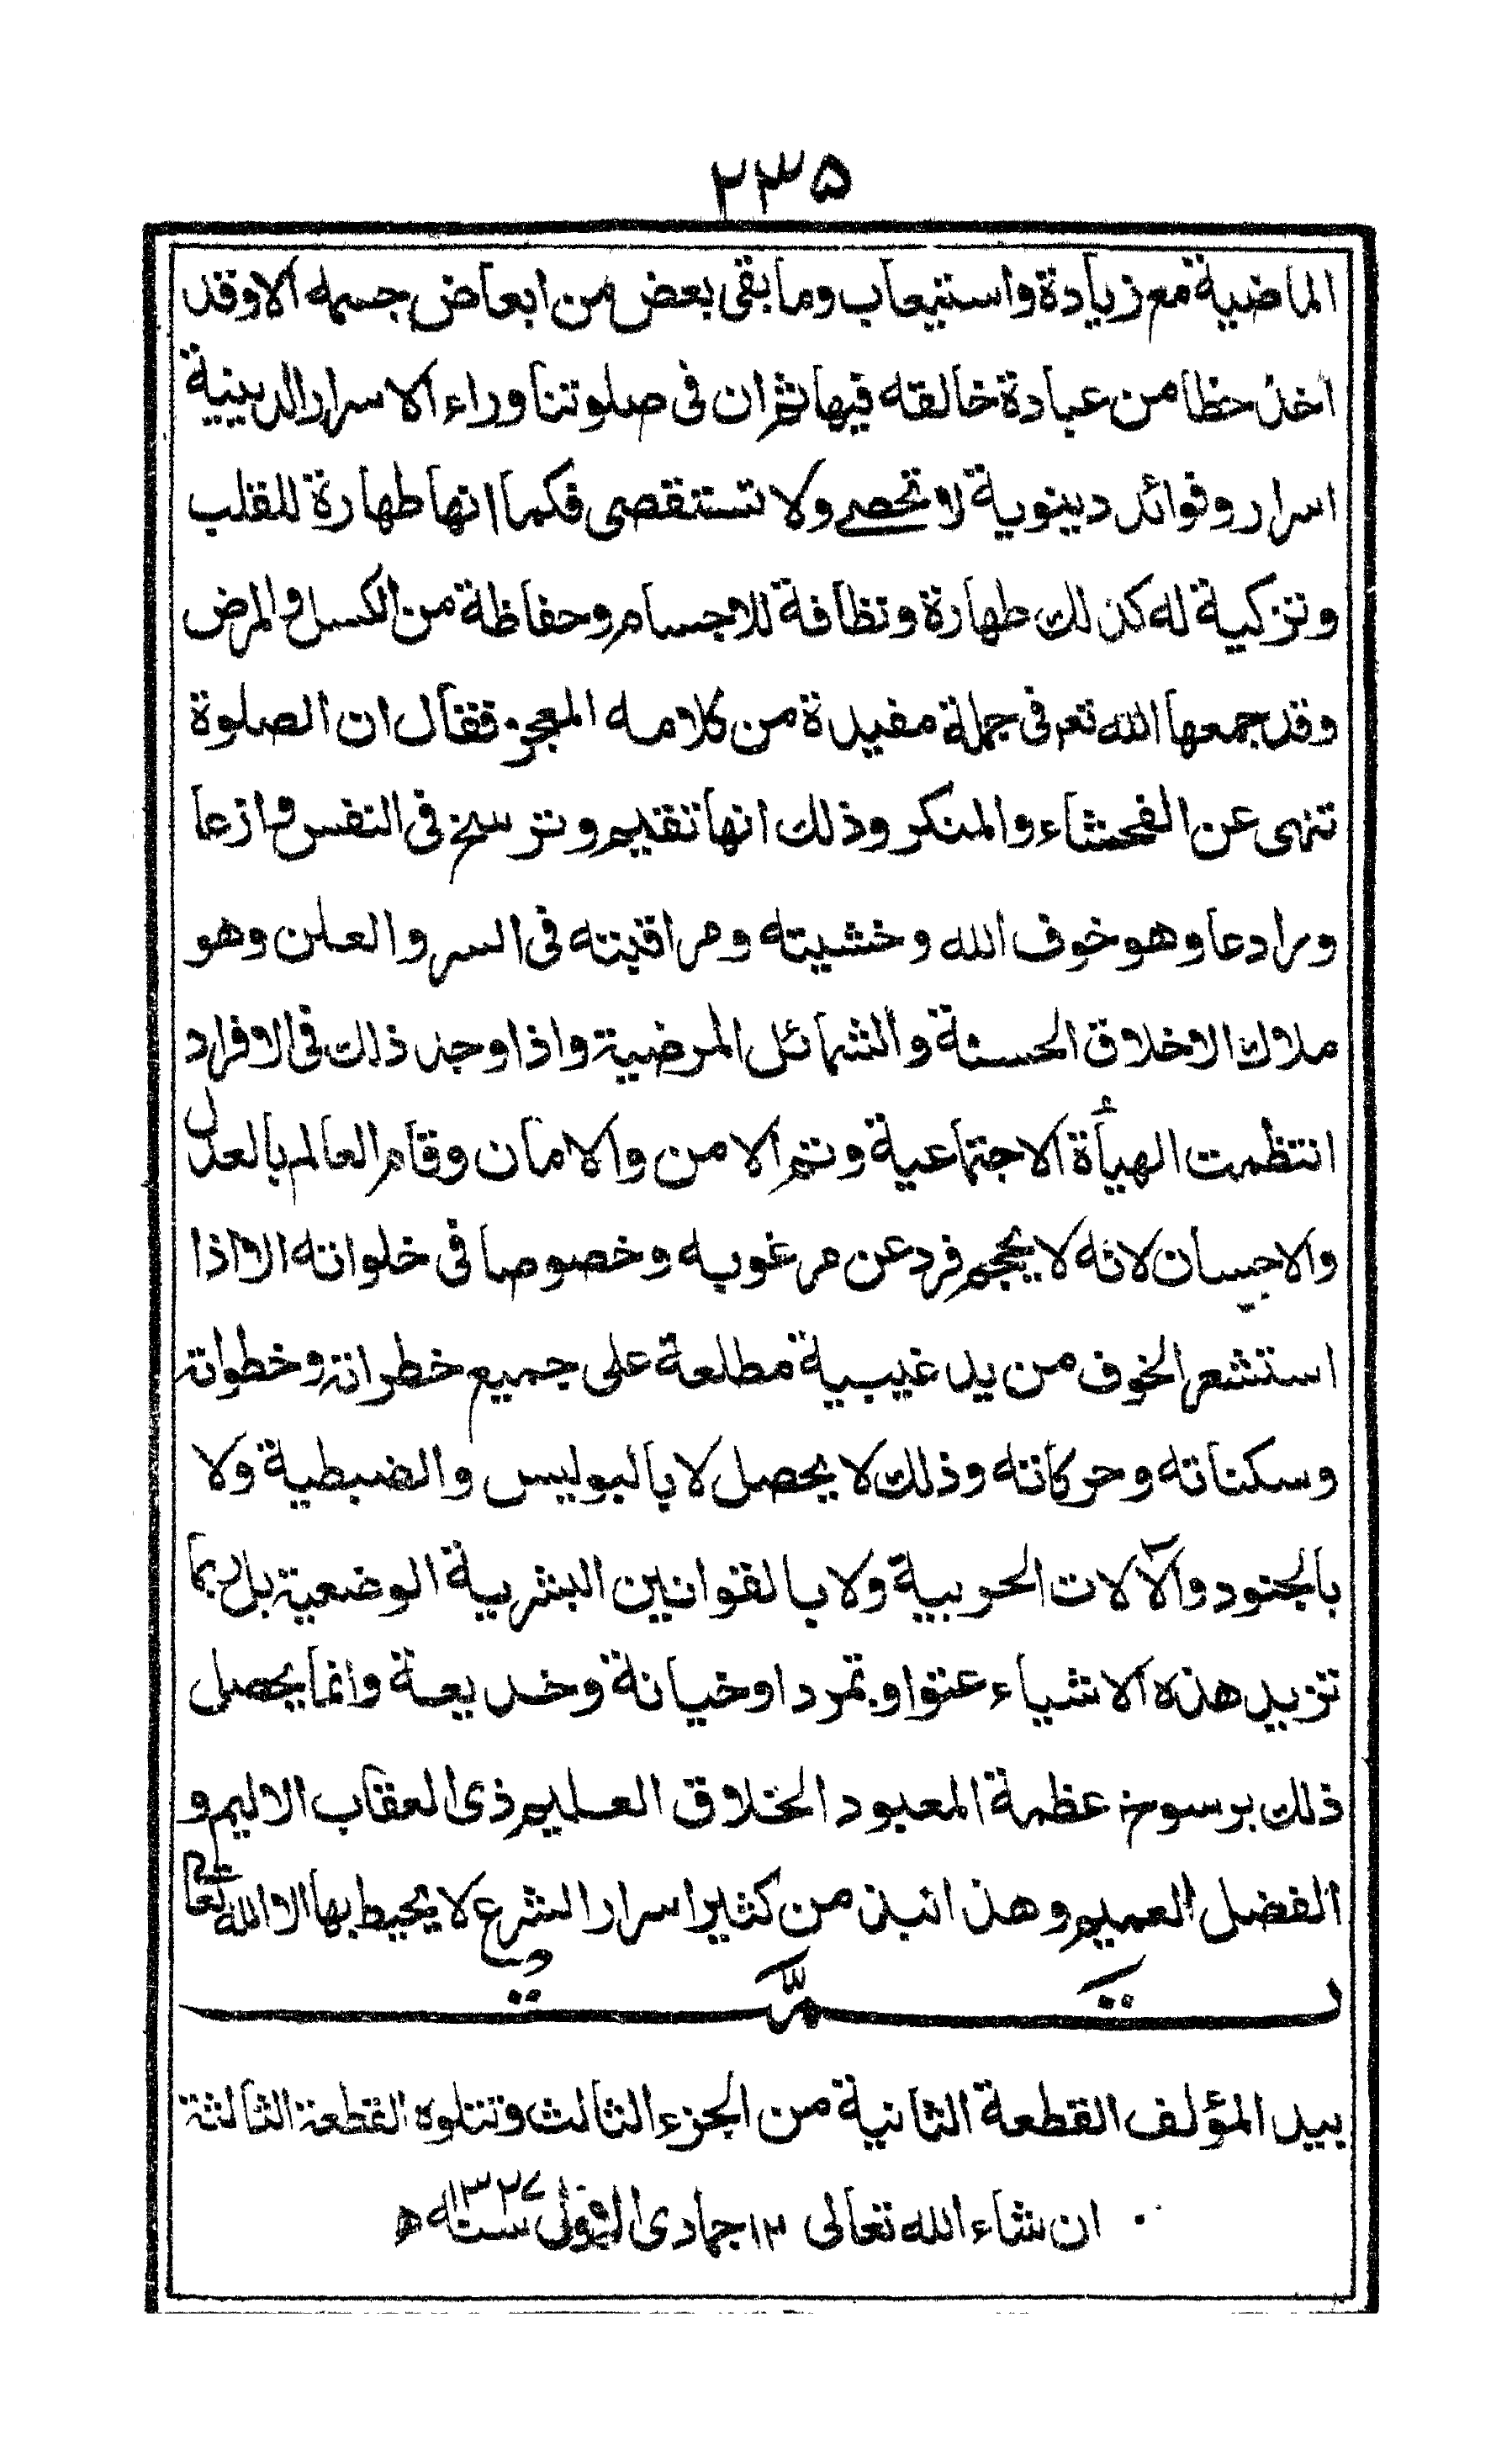 ۲۳۵
الماضية مع زيادة واستيعاب وما بقى بعض من ابعاض جسمه الا وقد
اخذ حظا من عبادة خالقه فيها ثم ان فى صلوتنا وراء الاسرار الدينية
اسرار وفوائد دينوية لا تحصے ولا تستقصى فكما انها طهارة للقلب
وتزكية له كذلك طهارة ونظافة للاجسام وحفاظة من الكسل والمرض
وقد جمعها الله تعم فى جملة مفيدة من كلامه المعجز فقال ان الصلوة
تنهى عن الفحشاء والمنكر وذلك انها تقيم وترسخ فى النفس وازعا
ورادعا وهو خوف الله وخشيته ومراقبته فى السر والعلن وهو
ملاك الاخلاق الحسنة والشمائل المرضية واذا وجد ذلك فى الافراد
انتظمت الهيأة الاجتماعية وتم الامن والامان وقام العالم بالعدل
والاحسان لانه لا يحجم فرد عن مرغوبه وخصوصا فى خلواته الا اذا
استشعر الخوف من يد غيبية مطلعة على جميع خطراته وخطواته
وسكناته وحركاته وذلك لا يحصل لا بالبوليس والضبطية ولا
بالجنود والآلات الحربية ولا بالقوانين البشرية الوضعية بل ربما
تزيد هذه الاشياء عتوا وتمردا وخيانة وخديعة وانما يحصل
ذلك برسوخ عظمة المعبود الخلاق العليم ذى العقاب الاليم و
الفضل العميم وهذا نبذ من كثير اسرار الشرع لا يحيط بها الا الله تعالى
تمت
بيد المؤلف القطعة الثانية من الجزء الثالث وتتلوه القطعة الثالثة
ان شاء الله تعالى ۱۲ جمادى سنه ۱۳۲۷ ه